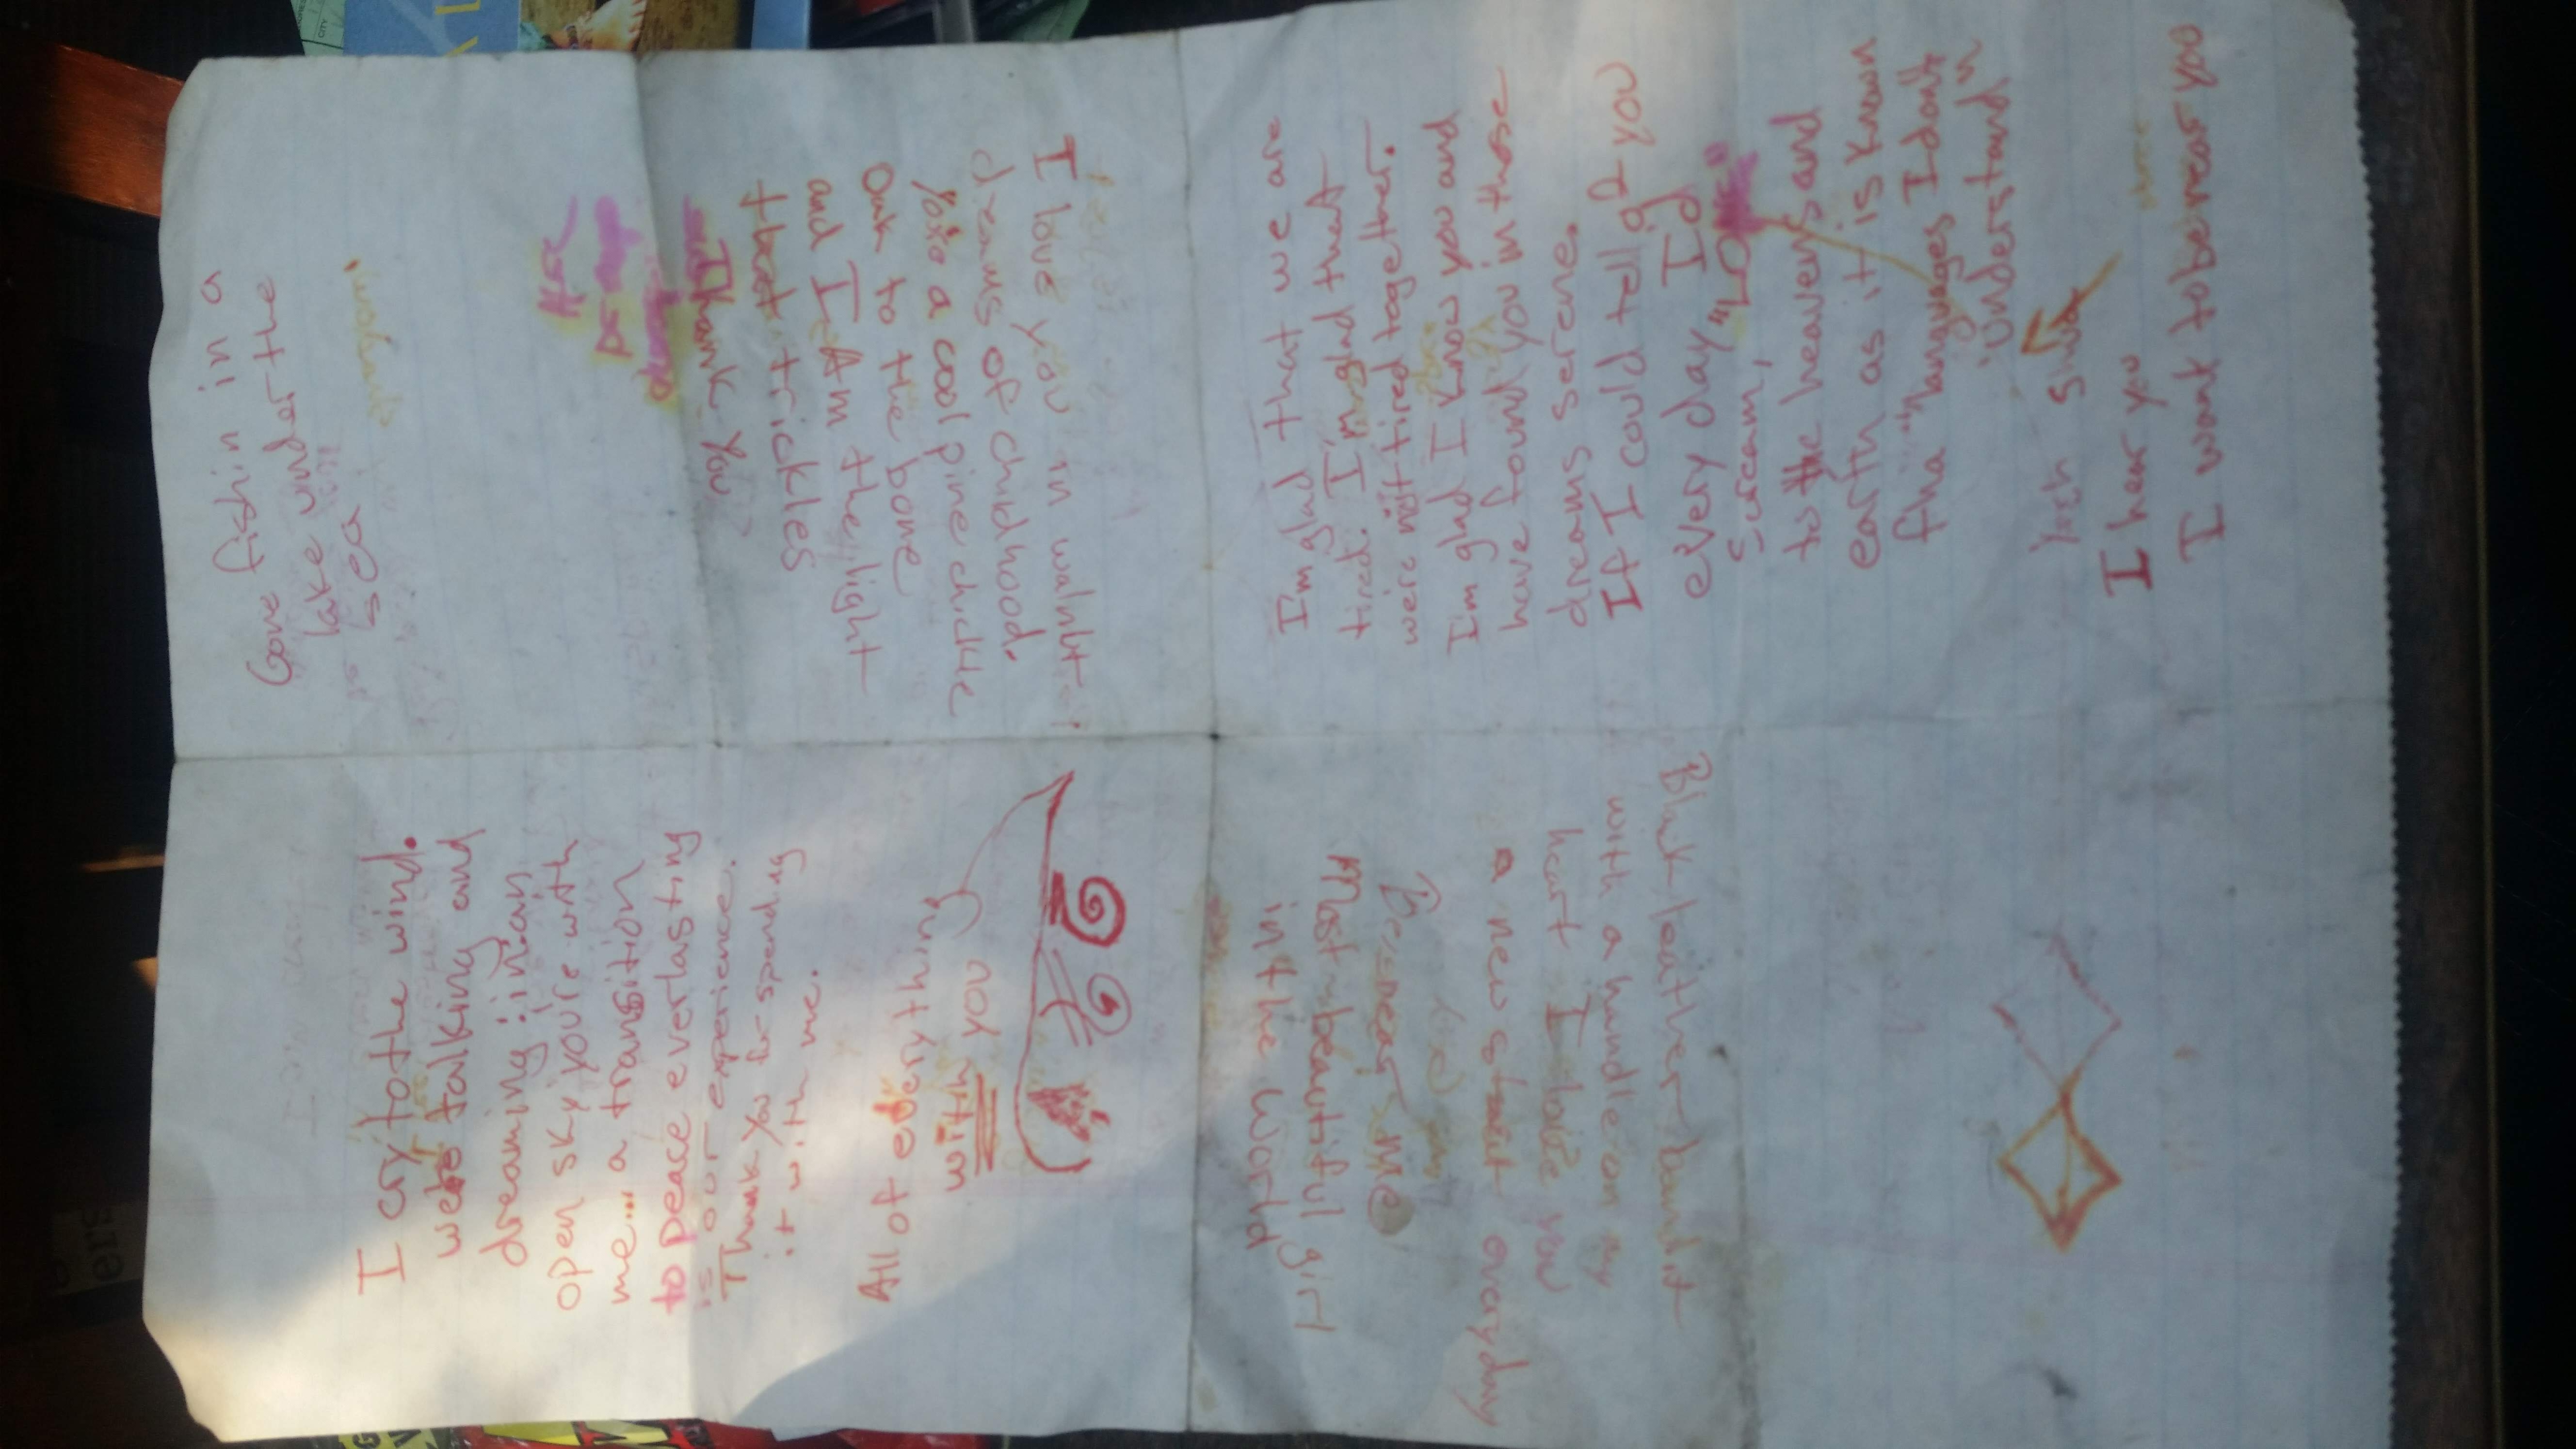 I cry to the wind.
we're talking and
dreaming : in an
open sky you're with
me... a transition
to peace everlasting
is our experience.
Thank You for spending
it with me.
All of everything
with you
Gone fishin in a
lake under the
sea
I love you in walnut
dreams of childhood.
a cool pine
Oak to the bone
and I Am the light
that trickles
Thank You
Black leather bandit
with a handle on my
heart I love you
a new everyday
me
Most beautiful girl
in the world
I'm glad that we are
tired. I'm glad that
we're not tired together.
I'm glad I know you and
have found you in those
dreams serene.
If I could tell you
every day, I'd
scream, "LOVE"
to the heavens and
earth as it is known
"languages I don't
understand"
I hear you
I want to be near you
ers
CITY